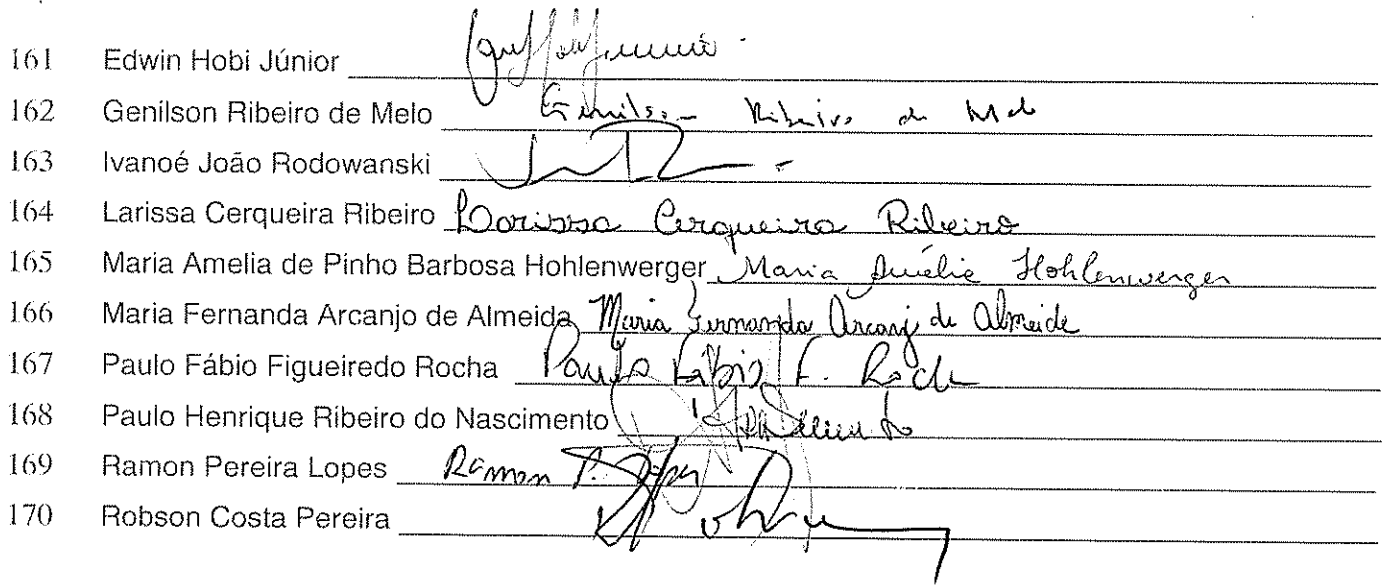 161 Edwin Hobi Júnior
162 Genilson Ribeiro de Melo Genilson Ribeiro de Melo
163 Ivanoé João Rodowanski
164 Larissa Cerqueira Ribeiro Larissa Cerqueira Ribeiro
165 Maria Amelia de Pinho Barbosa Hohlenwerger Maria Amélia Hohlenwerger
166 Maria Fernanda Arcanjo de Almeida Maria Fernanda Arcanjo de Almeida
167 Paulo Fábio Figueiredo Rocha Paulo Fábio F. Rocha
168 Paulo Henrique Ribeiro do Nascimento
169 Ramon Pereira Lopes Ramon P. Lopes
170 Robson Costa Pereira